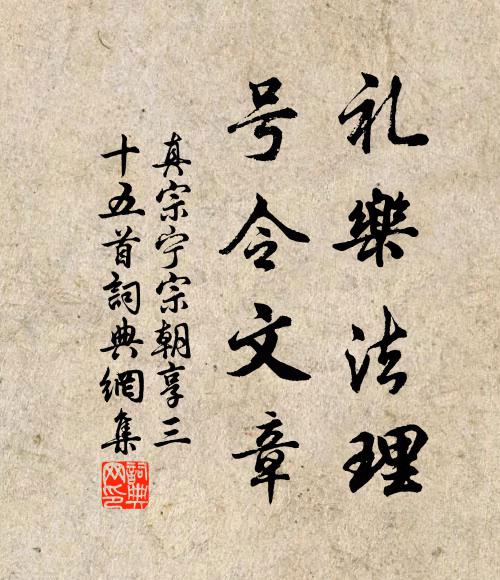 礼樂法理
号令文章
真宗宁宗朝享三
十五首詞典網集
詞典
网印